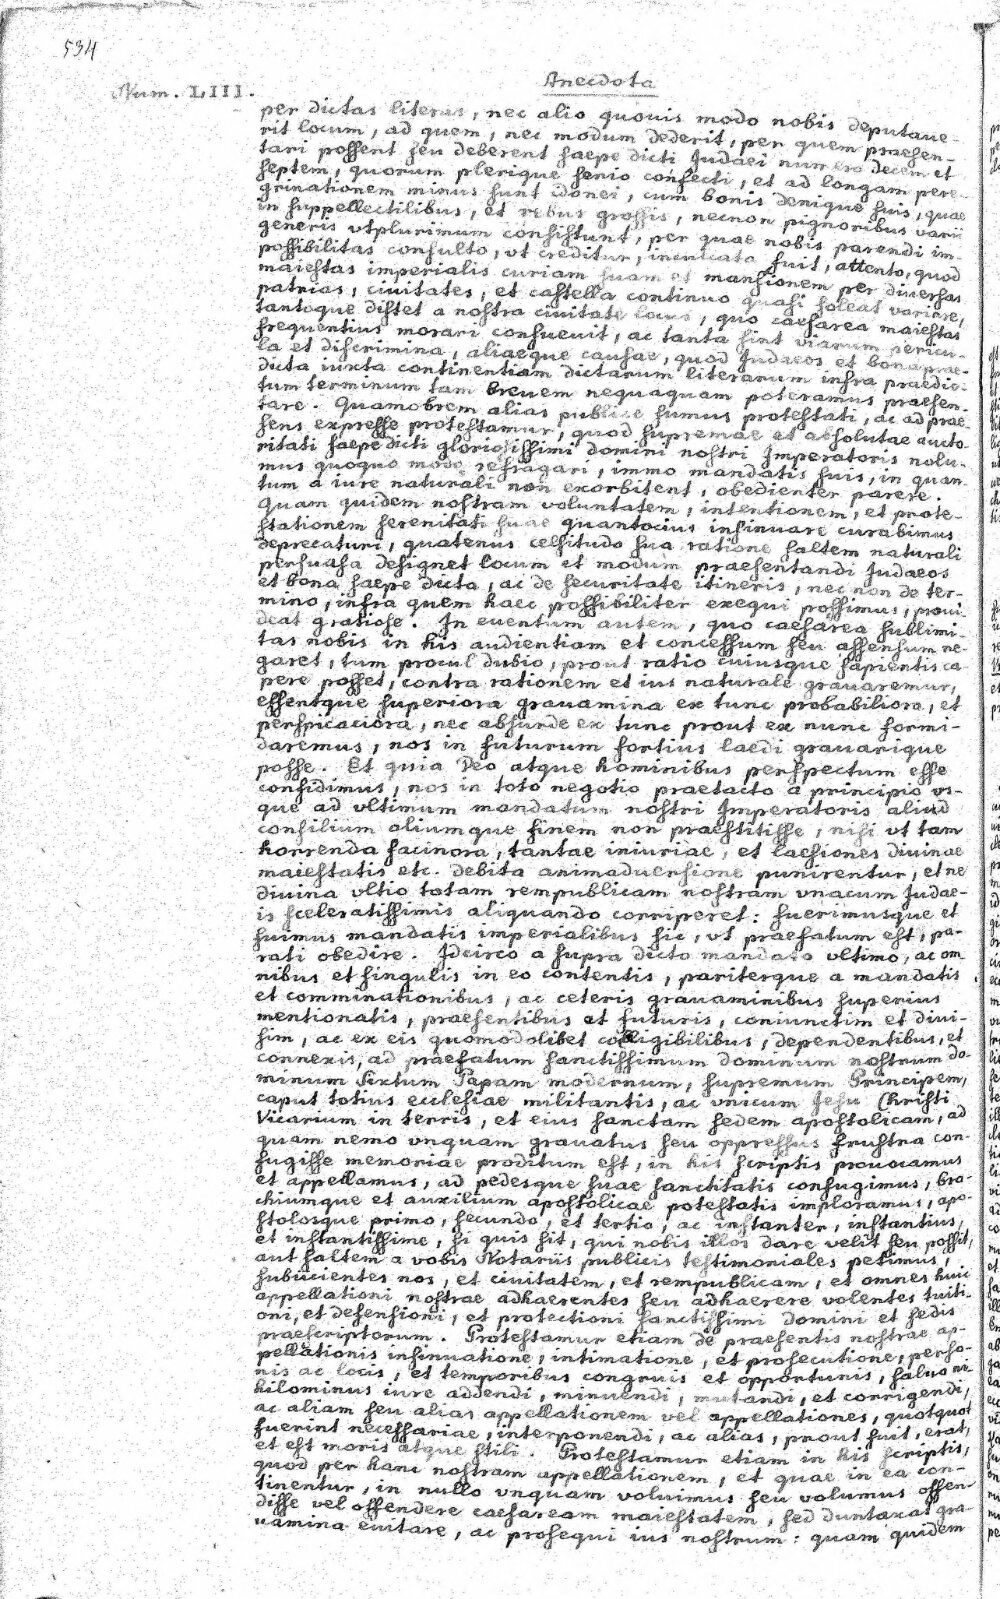 534
Num. LIII.
Anecdota
per dictas literas, nec alio quouis modo nobis deputaue-
rit locum, ad quem, nec modum dederit, per quem praesen-
tari possent seu deberent saepe dicti Judaei numero decem et
septem, quorum plerique senio confecti, et ad longam pere-
grinationem minus sunt idonei, cum bonis denique suis, quae
in suppellectilibus, et rebus grossis, necnon pignoribus varii
generis vtplurimum consistunt, per quae nobis parendi im-
possibilitas consulto, vt creditur, inculcata fuit, attento, quod
maiestas imperialis curiam suam et mansionem per diuersas
patrias, ciuitates, et castella continuo quasi soleat variare,
tantoque distet a nostra ciuitate locus, quo caesarea maiestas
frequentius morari consueuit, ac tanta sint viarum pericu-
la et discrimina, aliaeque causae, quod Judaeos et bona prae-
dicta iuxta continentiam dictarum literarum infra praedic-
tum terminum tam breuem nequaquam poteramus praesen-
tare. Quamobrem alias publice sumus protestati, ac ad prae-
sens expresse protestamur, quod supremae et absolutae aucto-
ritati saepe dicti gloriosissimi domini nostri Imperatoris nolu-
mus quoquo modo refragari, immo mandatis suis, in quan-
tum a iure naturali non exorbitent, obedienter parere.
Quam quidem nostram voluntatem, intentionem, et prote-
stationem serenitati suae quantocius insinuare curabimus
deprecaturi, quatenus celsitudo sua ratione saltem naturali
persuasa designet locum et modum praesentandi Judaeos
et bona saepe dicta, ac de securitate itineris, nec non de ter-
mino, infra quem haec possibiliter exequi possimus, proui-
deat gratiose. In euentum autem, quo caesarea sublimi-
tas nobis in his audientiam et concessum seu assensum ne-
garet, tum procul dubio, prout ratio cuiusque sapientis ca-
pere posset, contra rationem et ius naturale grauaremur,
essentque superiora grauamina ex tunc probabiliora, et
perspicaciora, nec absurde ex tunc prout ex nunc formi-
daremus, nos in futurum fortius laedi grauarique
posse. Et quia Deo atque hominibus perspectum esse
confidimus, nos in toto negotio praetacto a principio vs-
que ad vltimum mandatum nostri Imperatoris aliud
consilium aliumque finem non praestitisse, nisi vt tam
horrenda facinora, tantae iniuriae, et laesiones diuinae
maiestatis etc. debita animaduersione punirentur, et ne
diuina vltio totam rempublicam nostram vnacum Judae-
is sceleratissimis aliquando corriperet: fuerimusque et
simus mandatis imperialibus sic, vt praefatum est, pa-
rati obedire. Idcirco a supra dicto mandato vltimo, ac om-
nibus et singulis in eo contentis, pariterque a mandatis
et comminationibus, ac ceteris grauaminibus superius
mentionatis, praesentibus et futuris, coniunctim et diui-
sim, ac ex eis quomodolibet colligibilibus, dependentibus, et
connexis, ad praefatum sanctissimum dominum nostrum do-
minum Sixtum Papam modernum, supremum Principem,
caput totius ecclesiae militantis, ac vnicum Jesu Christi
Vicarium in terris, et eius sanctam sedem apostolicam, ad
quam nemo vnquam grauatus seu oppressus frustra con-
fugisse memoriae proditum est, in his scriptis prouocamus
et appellamus, ad pedesque suae sanctitatis confugimus, bra-
chiumque et auxilium apostolicae potestatis imploramus, apo-
stolosque primo, secundo, et tertio, ac instanter, instantius,
et instantissime, si quis sit, qui nobis illos dare velit seu possit,
aut saltem a vobis Notariis publicis testimoniales petimus,
subiicientes nos, et ciuitatem, et rempublicam, et omnes huic
appellationi nostrae adhaerentes seu adhaerere volentes tuiti-
oni, et defensioni, et protectioni sanctissimi domini et sedis
praescriptorum. Protestamur etiam de praesentis nostrae ap-
pellationis insinuatione, intimatione, et prosecutione, perso-
nis ac locis, et temporibus congruis et opportunis, saluo ni-
hilominus iure addendi, minuendi, mutandi, et corrigendi,
ac aliam seu alias appellationem vel appellationes, quotquot
fuerint necessariae, interponendi, ac alias, prout fuit, erat,
et est moris atque stili. Protestamur etiam in his scriptis,
quod per hanc nostram appellationem, et quae in ea con-
tinentur, in nullo vnquam voluimus seu volumus offen-
disse vel offendere caesaream maiestatem, sed duntaxat gra-
uamina euitare, ac prosequi ius nostrum: quam quidem